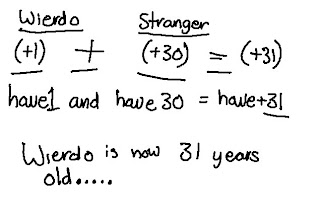 Wierdo Stranger
(+1) + (+30) = (+31)
have1 and have 30 = have+31
Wierdo is now 31 years
old.....